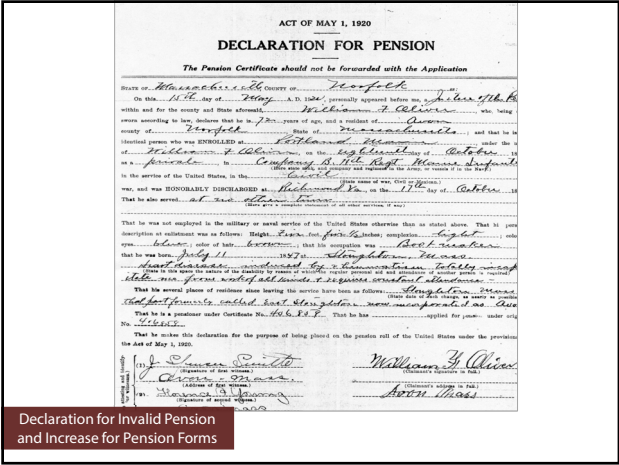 ACT OF MAY 1, 1920
DECLARATION FOR PENSION
The Pension Certificate should not be forwarded with the Application
STATE OF Massachusetts COUNTY OF Norfolk ss:
On this 15th day of May A. D. 192, personally appeared before me, a Justice of the
within and for the county and State aforesaid, William F Oliver who, being
sworn according to law, declares that he is 72 years of age, and a resident of Avon
county of Norfolk State of Massachusetts; and that he is
identical person who was ENROLLED at Portland under the
of William F Oliver, on the eighteenth day of October, 18
as a private, in Company B. 11th Regt Maine Infant
(Here state rank, and company and regiment in the Army, or vessel if in the Navy.)
in the service of the United States, in the Civil
(State name of war, Civil or Mexican.)
war, and was HONORABLY DISCHARGED at Richmond Va, on the 17th day of October 18
That he also served at no other time
(Here give a complete statement of all other services, if any.)
That he was not employed in the military or naval service of the United States otherwise than as stated above. That hi pers
description at enlistment was as follows: Height, Five feet five ½ inches; complexion, light; colo
eyes, blue; color of hair, brown; that his occupation was Boot maker
that he was born July 11 1847 at Stoughton, Mass
heart disease induced by rheumatism totally incap
(State in this space the nature of the disability by reason of which the regular personal aid and attendance of another person is required.)
me from work of all kinds & requires constant attendance
That his several places of residence since leaving the service have been as follows: Stoughton Mass
(State date of each change, as nearly as possible
that part formerly called East Stoughton now incorporated as Avo
That he is a pensioner under Certificate No. 406.859. That he has applied for under orig
No. 406859
That he makes this declaration for the purpose of being placed on the pension roll of the United States under the provision
the Act of May 1, 1920.
(1) J.
(Signature of first witness.)
Avon Mass.
(Address of first witness.)
(2) Florence
(Signature of second witness.)
William F Oliver
(Claimant's signature in full.)
Avon Mass
(Claimant's address in full.)
Declaration for Invalid Pension
and Increase for Pension Forms